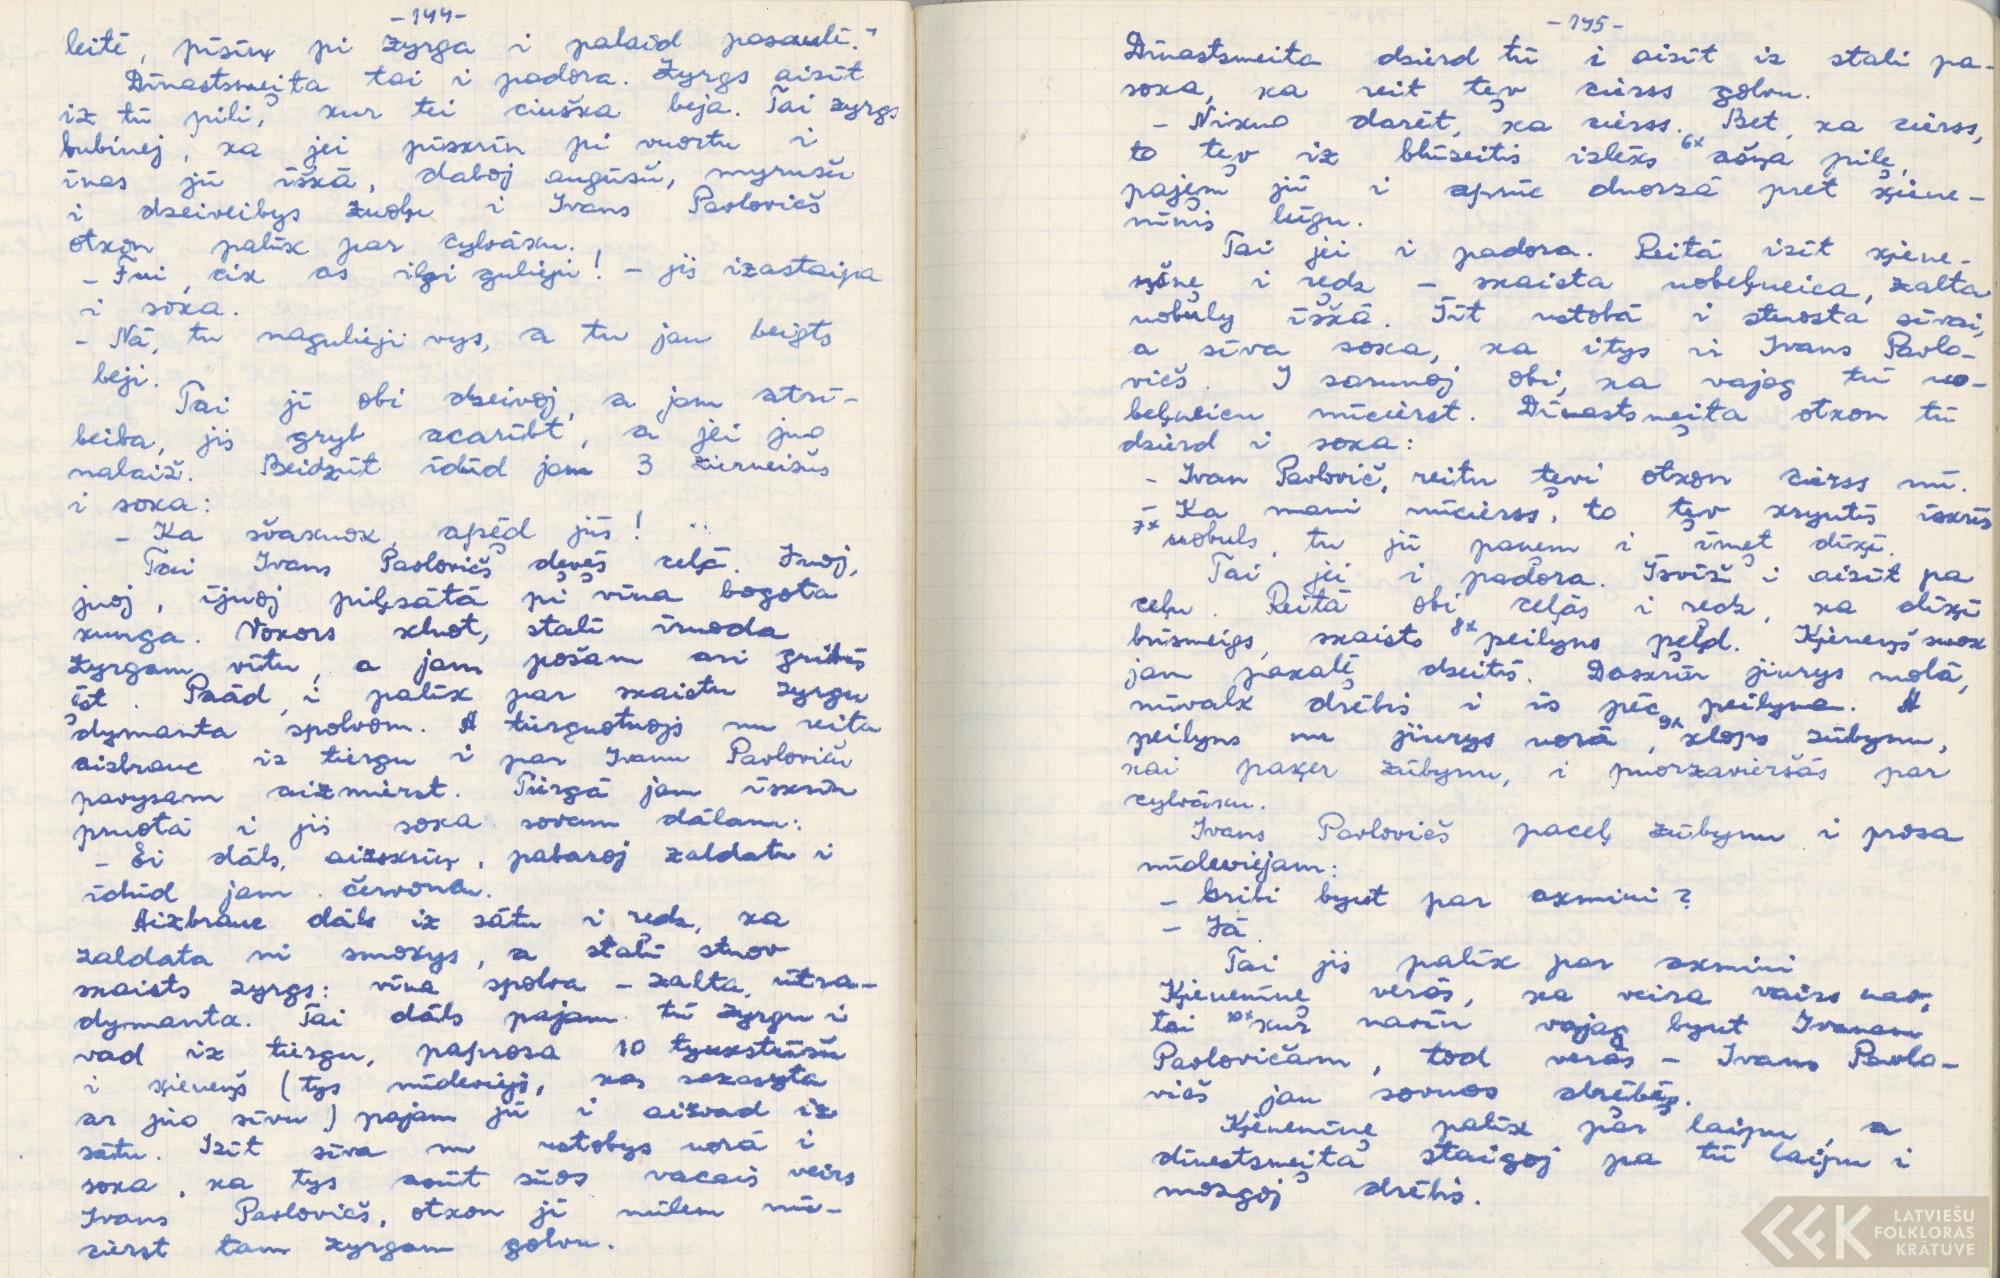 -144-
leitē, pīsīņ pi zyrga i palaid pasaulī."
Dīnastsmeita tai i padora. Zyrgs aisīt
iz tū pili, kur tei ciuška beja. Tai zyrgs
bubinej, ka jei pīskrīn pi vuortu i
īnas jū īškā, daboj augūšu, myrušu
i dzeiveibys zuoļu i Ivans Pavlovičs
otkon palīk par cylvāku.
- Fui, cik as iļgi gulieju! - jis izastaipa
i soka.
- Nā, tu naguliēji vys, a tu jau beigts
beji.
Tai jī obi dzeivoj, a jam strī-
beiba, jis gryb acarībt, a jei juo
nalaiž. Beidzūt īdūd jam 3 zierneišus
i soka:
- Ka švakuok, apēd jūs!
Tai Ivans Pavlovičs devēs ceļā. Juoj,
juoj, ījuoj piļsātā pi vīna bogota
kunga. Vokors kluot, stalī īruoda
zyrgam vītu, a jam pošam ari gribīs
ēst. Paād i palīk par skaistu zyrgu
dymanta spolvom. A tierguotuojs nu reita
aizbrauc iz tiergu i par Ivanu Pavloviču
pavysam aizmierst. Tiergā jam īskrīn
pruotā i jis soka sovam dālam:
- Ei dāls, aizskrīņ, pabaroj zaldatu i
īdūd jam červoncu.
Aizbrauc dāls iz sātu i redz, ka
zaldata ni smokys, a stalī stuov
skaists zyrgs: vīna spolva - zalta, ūtra-
dymanta. Tai dāls pajam tū zyrgu i
vad iz tiergu, paprosa 10 tyukstūšu
i kieneņš (tys nūdeviejs, kas sakasyta
ar juo sīvu) pajam jū i aizvad iz
sātu. Izīt sīva nu ustobys uorā i
soka, ka tys asūt sūos vacais veirs
Ivans Pavlovičs, otkon jī nūlem nū-
cierst tam zyrgam golvu.
-145-
Dīnastsmeita dzierd tū i aisīt iz stali pa-
soka, ka reit tev cierss golvu.
- Nikuo darēt, ka cierss. Bet, ka cierss,
to tev iz blūzeitis izlēks 6x ašņa pile,
pajem jū i aprūc duorzā pret kiene-
nīnis lūgu.
Tai jei i padora. Reitā isīt kiene-
nīne i redz - skaista uobeļneica, zalta
uobuly īškā. Īīt ustobā i stuosta sīvai,
a sīva soka, ka itys ir Ivans Pavlo-
vičs. I sarunoj obi, ka vajag tū uo-
beļneicu nūcierst. Dīnastsmeita otkon tū
dzierd i soka:
- Ivan Pavlovič, reitu tevi otkon cierss nū.
- Ka mani nūcierss, to tev kryutīs īskrīs
7x uobuls, tu jū paņem i īmet dīķī.
Tai jei i padora. Īsvīž i aisīt pa
ceļu. Reitā obi ceļās i redz, ka dīķī
brīsmeigs, skaists 8x peilyns peld. Kieneņš suok
jam pakaļ dzeitīs. Daskrīn jiurys molā,
nūvalk drēbis i īs piēc peilyna. A
peilyns nu jiurys uorā, 9x klops zūbynu,
kai paķer zūbynu, i puorzavieršās par
cylvāku.
Ivans Pavlovičs paceļ zūbynu i prosa
nūdeviejam:
- Gribi byut par akmini?
- Jā.
Tai jis palīk par akmini
Kienenīne verās, ka veira vairs nav,
tai 10x kur navīn vajag byut Ivanam
Pavlovičam, tod verās - Ivans Pavlo-
vičs jau sovuos drēbēs.
Kienenīne palīk par laipu, a
dīnestsmeita staigoj pa tū laipu i
mozgoj drēbis.
LATVIEŠU
FOLKLORAS
KRĀTUVE